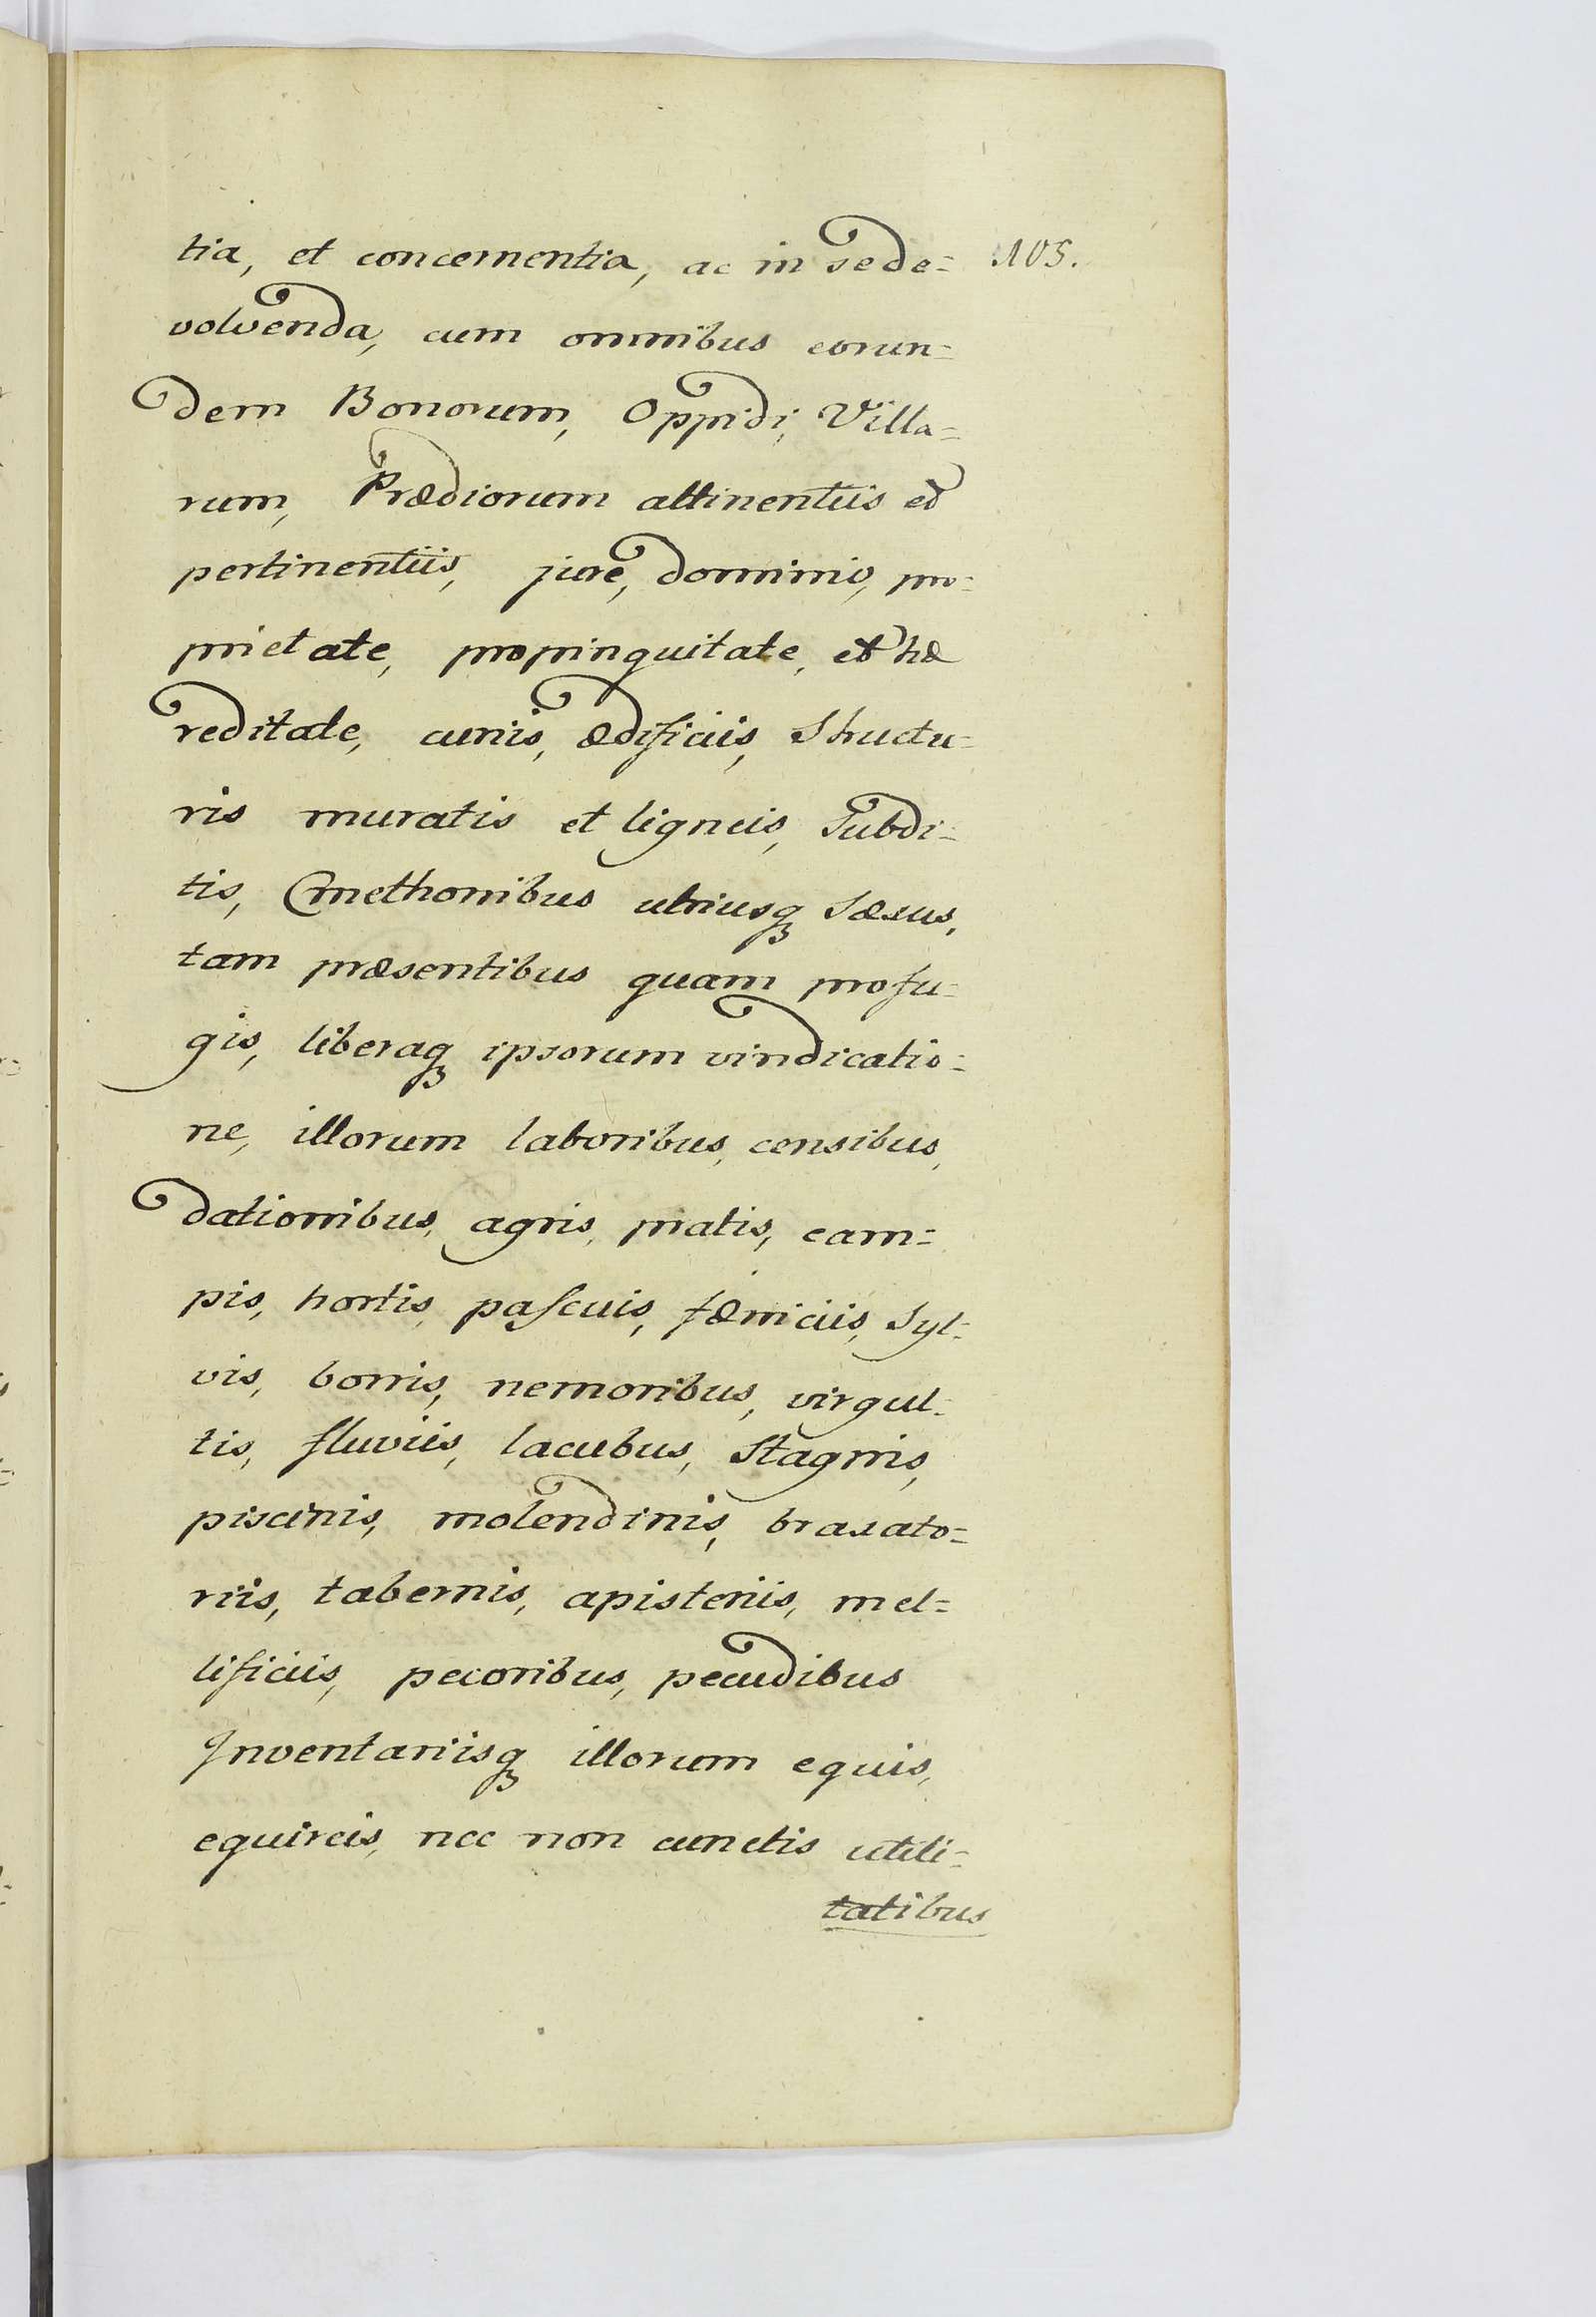 tia, et concernentia, ac in se de= 105.
volvenda, cum omnibus eorun=
dem Bonorum, Oppidi, Villa=
rum, Prædiorum attinentiis et
pertinentiis, jure, dominio, pro=
prietate, propinquitate, et hæ
reditate, curiis, ædificiis, Structu=
ris muratis et ligneis, Subdi=
tis, Cmethonibus utriusq3 Sæxus,
tam præsentibus quam profu=
gis, liberaq3 ipsorum vindicatio=
ne, illorum laboribus, censibus,
dationibus, agris, pratis, cam=
pis, hortis, pascuis, fæniciis, Syl=
vis, borris, nemoribus, virgul=
tis, fluviis, lacubus, Stagnis,
piscinis, molendinis, braxato=
riis, tabernis, apisteriis, mel=
lificiis, pecoribus, pecudibus
Inventariisq3 illorum equis,
equireis, nec non cunctis utili=
tatibus